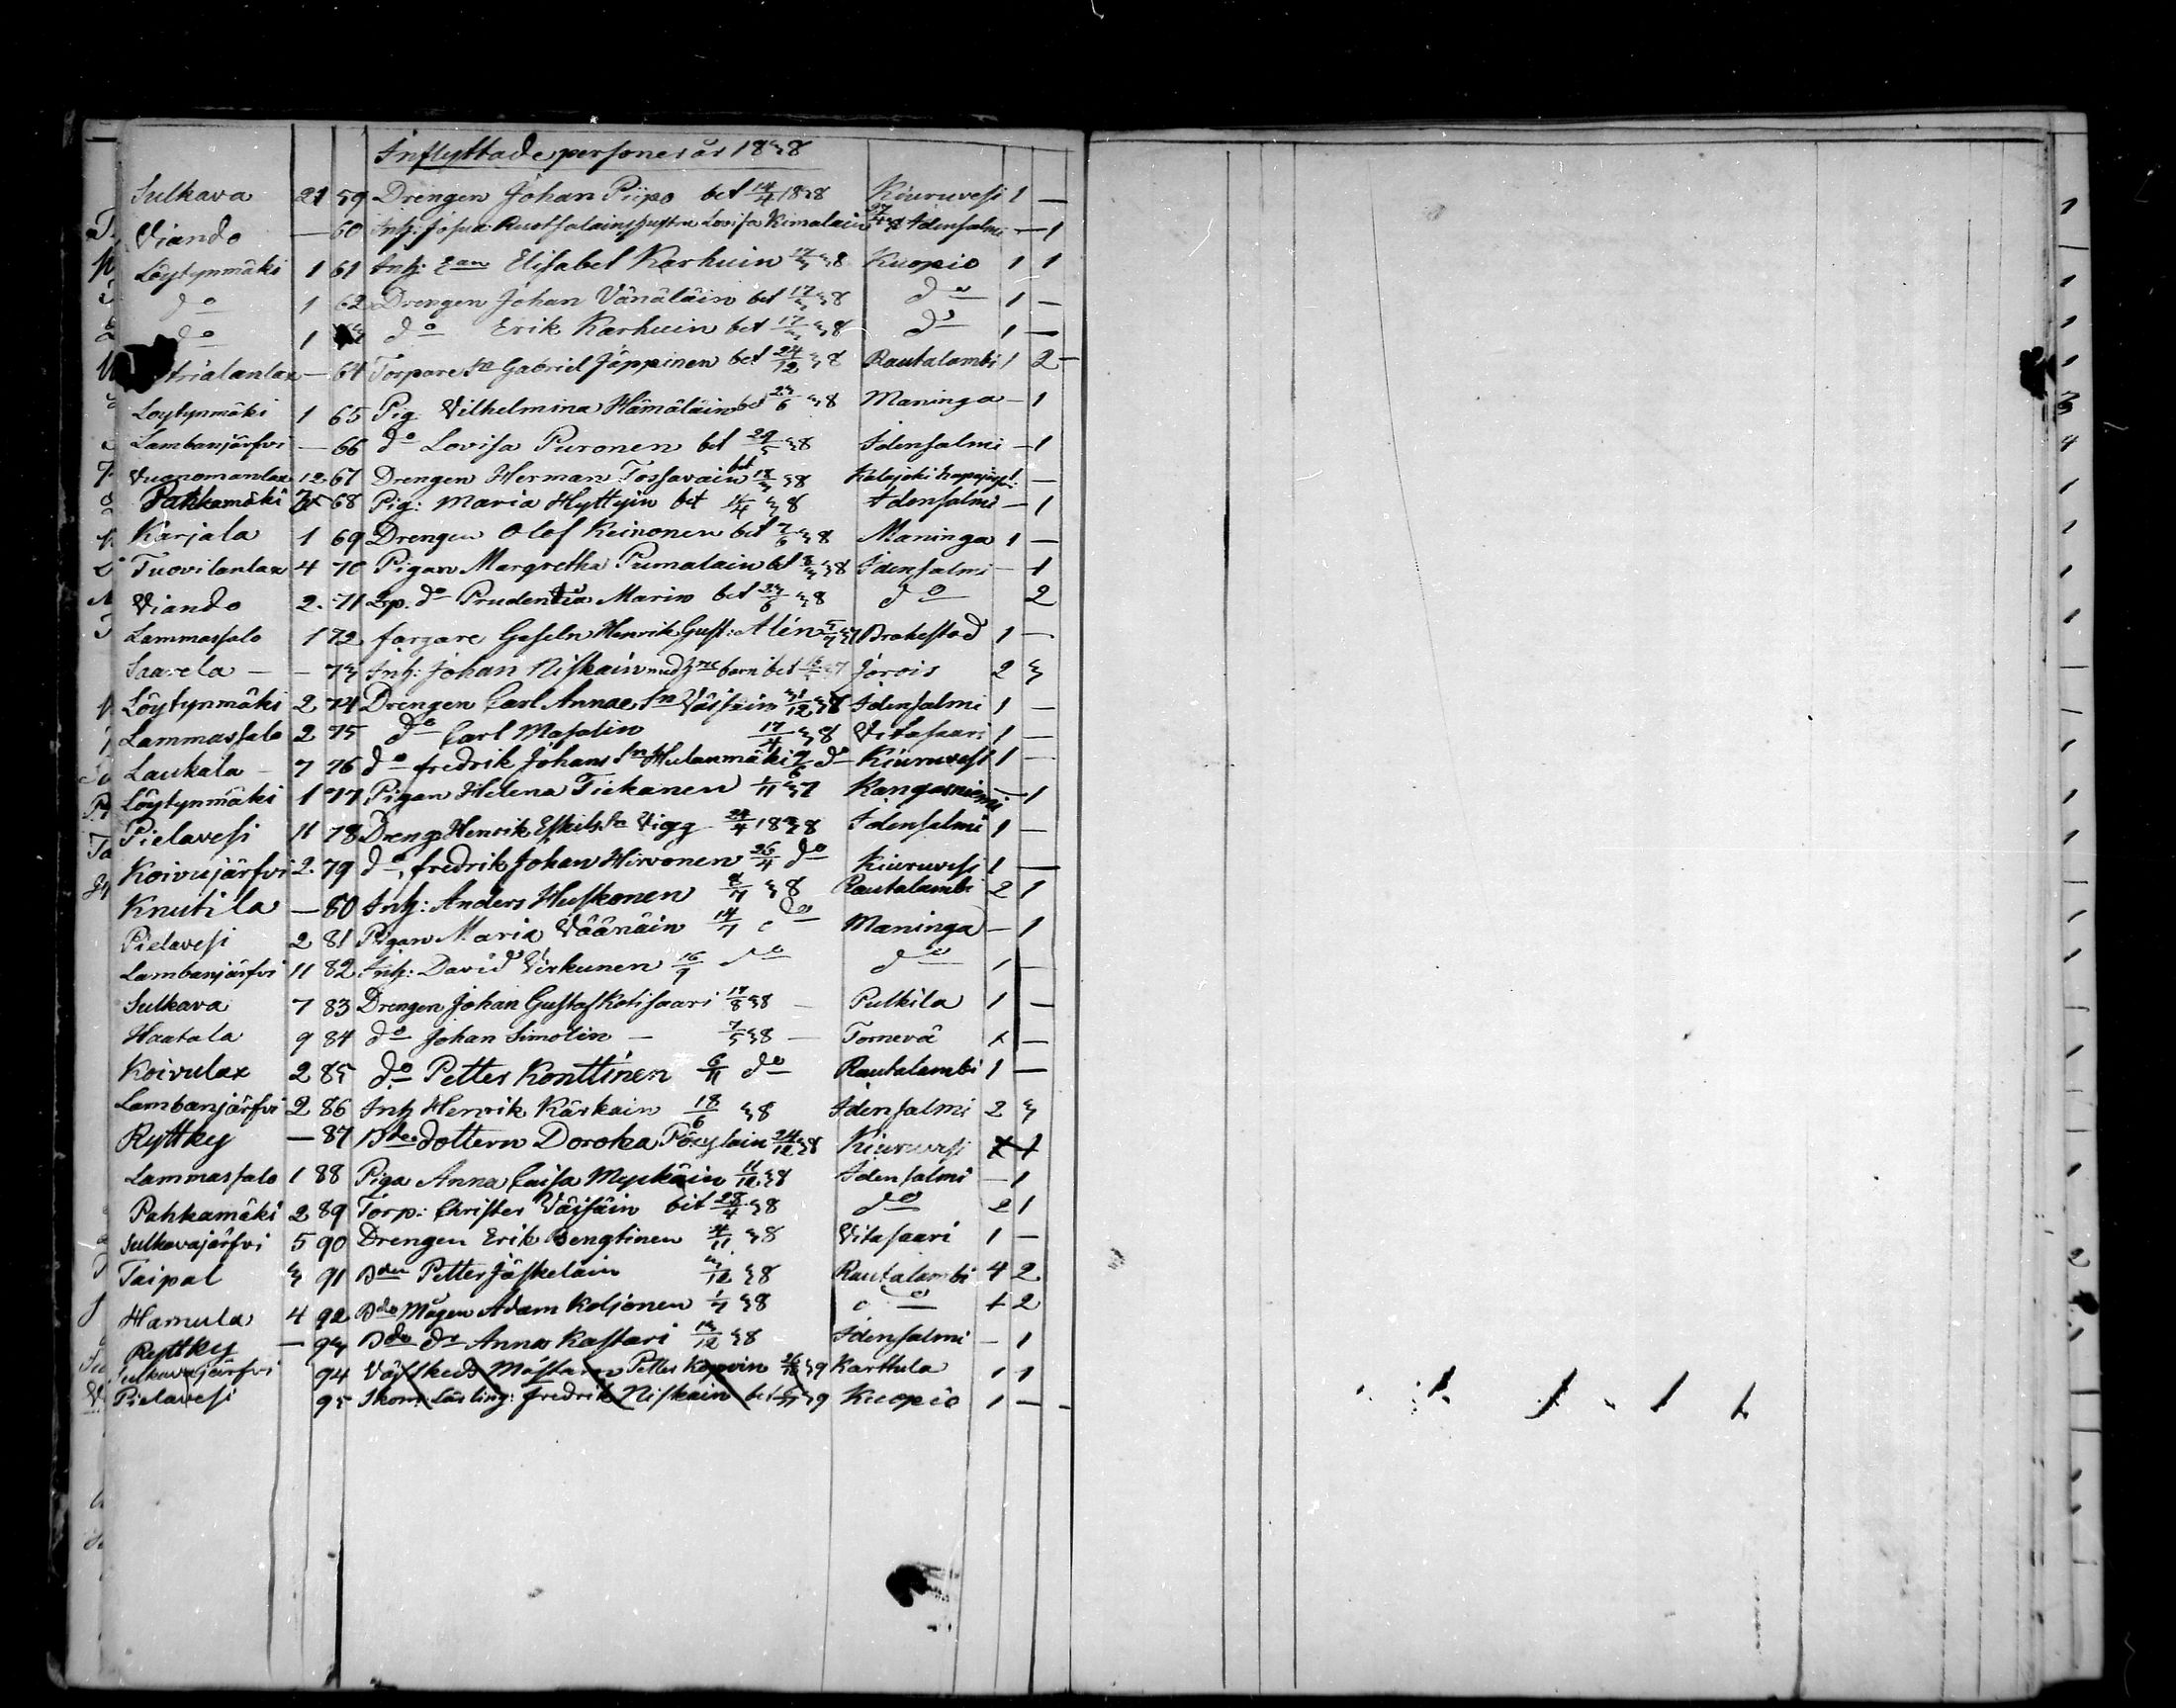 Inflyttade personer år 1838
Sulkava 21 59 Drengen Johan Piipo bet 14/4 1838 Kiuruvesi 1 —
Viando — 60 Inh: Josua Ruotsalains hustru Lovisa Kimalain 27/4 38 Idensalmi — 1
Löytynmäki 1 61 Inh: Elisabet Karhuin 17/3 38 Kuopio 1 1
do 1 62 Drengen Johan Vänäläin bet 17/3 38 do 1 —
do 1 63 do Erik Karhuin bet 17/3 38 do 1 —
— 64 Torpare Sn Gabriel Jäppinen bet 24/12 38 Rautalambi 1 2 —
Löytynmäki 1 65 Pig. Vilhelmina Hämäläin bet 23/6 38 Maninga — 1
Lambanjärfvi — 66 do Lovisa Puronen bet 29/5 38 Idensalmi — 1
Vuonomanlax 12 67 Drengen Herman Tossavain bet 18/3 38 Kalajoki —
Pahkamäki 68 Pig: Maria Hyttyin bet 14/4 38 Idensalmi — 1
Karjala 1 69 Drengen Olof Keinonen bet 7/6 38 Maninga 1 —
Tuovilanlax 4 70 Pigan Margretha Pumalain bet 8/3 38 Idensalmi — 1
Viando 2. 71 do Prudentia Marin bet 23/6 38 do 2
Lammassalo 1 72 färgare Geseln Henrik Gust: Alén 5/7 37 Brahestad 1 —
Saarela — — 73 Inh: Johan Niskain med 3ne barn bet 37 Jorois 2 3
Löytynmäki 2 74 Drengen Carl Annae Sn Väisäin 31/12 38 Idensalmi 1 —
Lammassalo 2 75 do Carl Masalin 17/4 38 Vitasaari 1 —
Laukala — 7 76 do fredrik Johans Sn Hulanmäki 2/6 do Kiuruvesi 1 —
Löytynmäki 1 77 Pigan Helena Tiekanen 1/11 37 Kangasniemi — 1
Pielavesi 11 78 Dreng Henrik Eskils Sn Vigg 24/4 1838 Idensalmi 1 —
Koivujärfvi 2. 79 do fredrik Johan Hirvonen 26/4 do Kiuruvesi 1 —
Knutila — 80 Inh: Anders Huskonen 8/7 38 Rautalambi 2 1
Pielavesi 2 81 Pigan Maria Väänäin 14/7 do Maninga — 1
Lambanjärfvi 11 82 Inh: David Virkunen 16/7 do do 1 —
Sulkava 7 83 Drengen Johan Gustaf Kotisaari 17/8 38 — Pulkila 1 —
Haatala 9 84 do Johan Simolin — 7/5 38 — Tornevå 1 —
Koivulax 2 85 do Petter Konttinen 6/11 do Rautalambi 1 —
Lambanjärfvi 2 86 Inh Henrik Kärkäin 18/6 38 Idensalmi 2 3
Ryttky — 87 Bde dottern Dorotea Pöxyläin 24/12 38 Kiuruvesi 1
Lammassalo 1 88 Piga Anna Caisa Myckäin 11/12 38 Idensalmi — 1
Pahkamäki 2 89 Torp: Christer Väisäin bet 28/4 38 do 2 1
Sulkavajärfvi 5 90 Drengen Erik Bengtinen 4/11 38 Vitasaari 1 —
Taipal 3 91 Bden Petter Jäskeläin 3/12 38 Rautalambi 4 2
Hamula 4 92 Bde Mågen Adam Koljonen 1/7 38 do 1 2
Ryttky — 93 Bde dr Anna Kastari 12/12 38 Idensalmi — 1
Sulkavajärfvi 94 Petter 39 Karttula 1 1
Pielavesi 95 Skom: Lärling: fredrik Niskain bet 39 Kuopio 1 — —